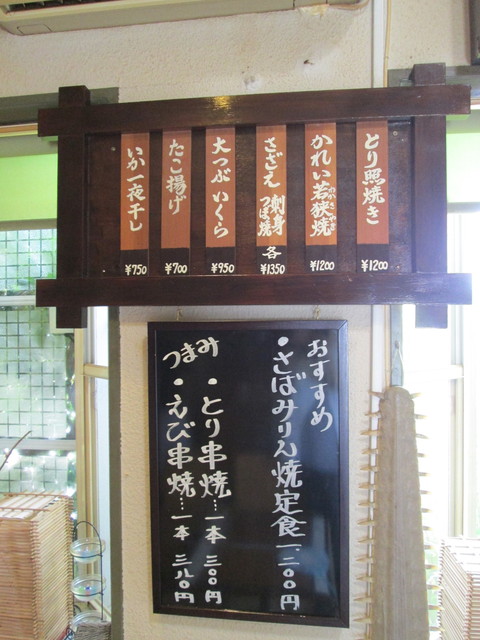 とり照焼き ¥1200
かれい若狭焼 わかさやき ¥1200
さざえ 刺身 つぼ焼 各 ¥1350
大つぶいくら ¥950
たこ揚げ ¥700
いか一夜干し ¥750
おすすめ
・さばみりん焼定食 一、二〇〇円
つまみ
・とり串焼…一本 三〇〇円
・えび串焼…一本 三八〇円